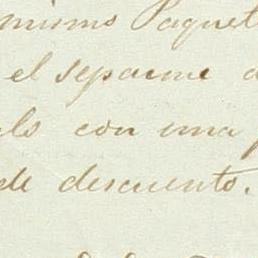 mismo Paquet
el separme a
lo con una p
de descuento.